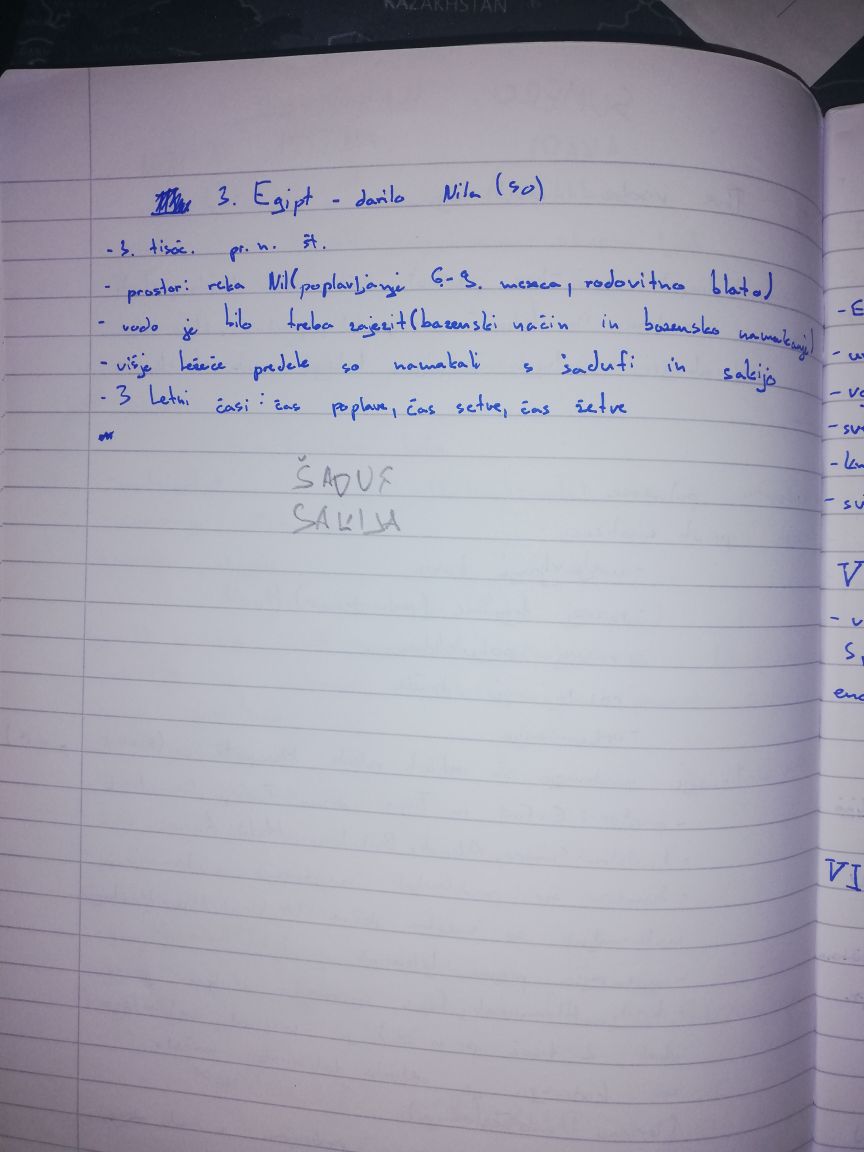 KAZAKHSTAN
3. Egipt - darilo Nila (50)
- 3. tisoč. pr. n. št.
- prostor: reka Nil (poplavljanje 6.-9. meseca, rodovitno blato)
- vodo je bilo treba zajezit (bazenski način in bazensko namakanje)
- višje ležeče predele so namakali s šadufi in sakijo
- 3 letni časi: čas poplave, čas setve, čas žetve
ŠADUF
SAKIJA
V
VI